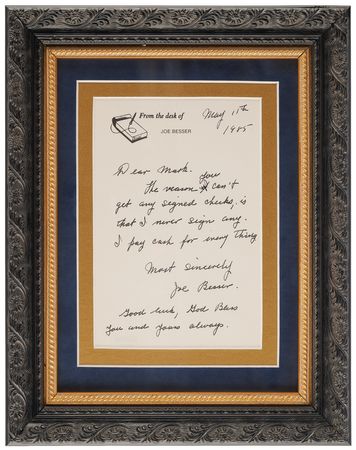 From the desk of
JOE BESSER
May 11th
1985
Dear Mark.
you
The reason I can't
get any signed checks, is
that I never sign any.
I pay cash for every thing
Most Sincerely
Joe Besser.
Good luck, God Bless
You and yours always.